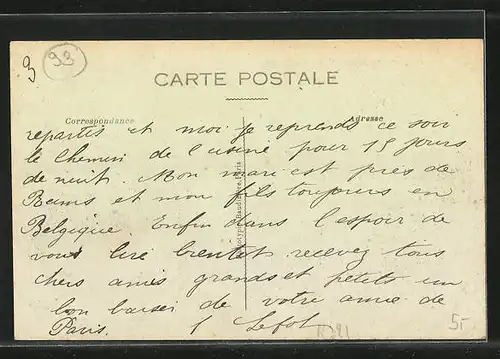 9
93
CARTE POSTALE
Correspondance
Adresse
repartis et moi je reprends ce soir
le chemin de l'usine pour 15 jours
de nuit. Mon mari est près de
Reims et mon fils toujours en
Belgique. Enfin dans l'espoir de
vous lire bientot recevez tous
chers amis grands et petits un
bon baiser de votre amie de
Paris. Lefol
5-